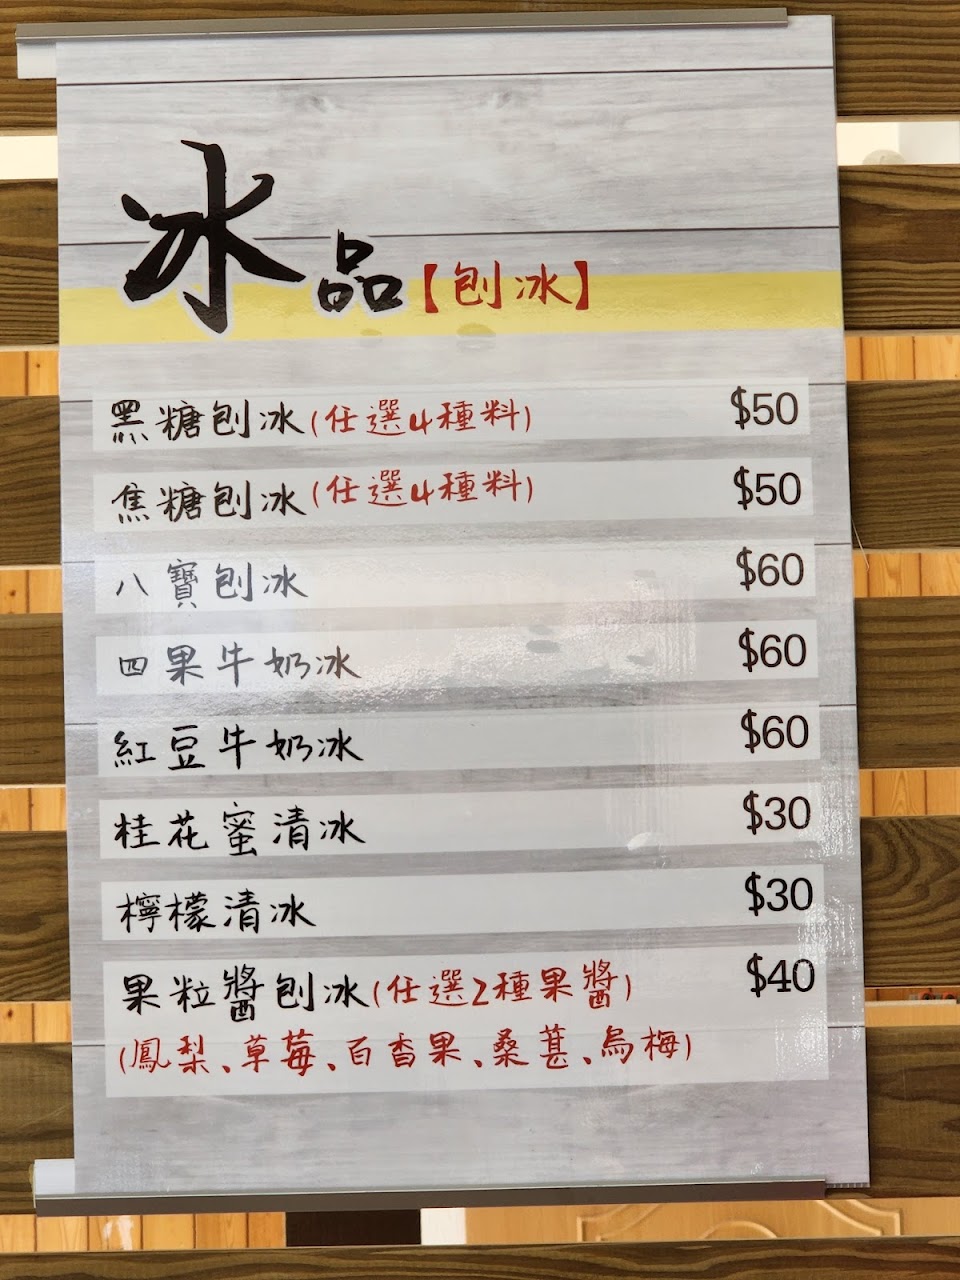 冰品【刨冰】
黑糖刨冰(任選4種料) $50
焦糖刨冰(任選4種料) $50
八寶刨冰 $60
四果牛奶冰 $60
紅豆牛奶冰 $60
桂花蜜清冰 $30
檸檬清冰 $30
果粒醬刨冰(任選2種果醬) $40
(鳳梨、草莓、百香果、桑葚、烏梅)